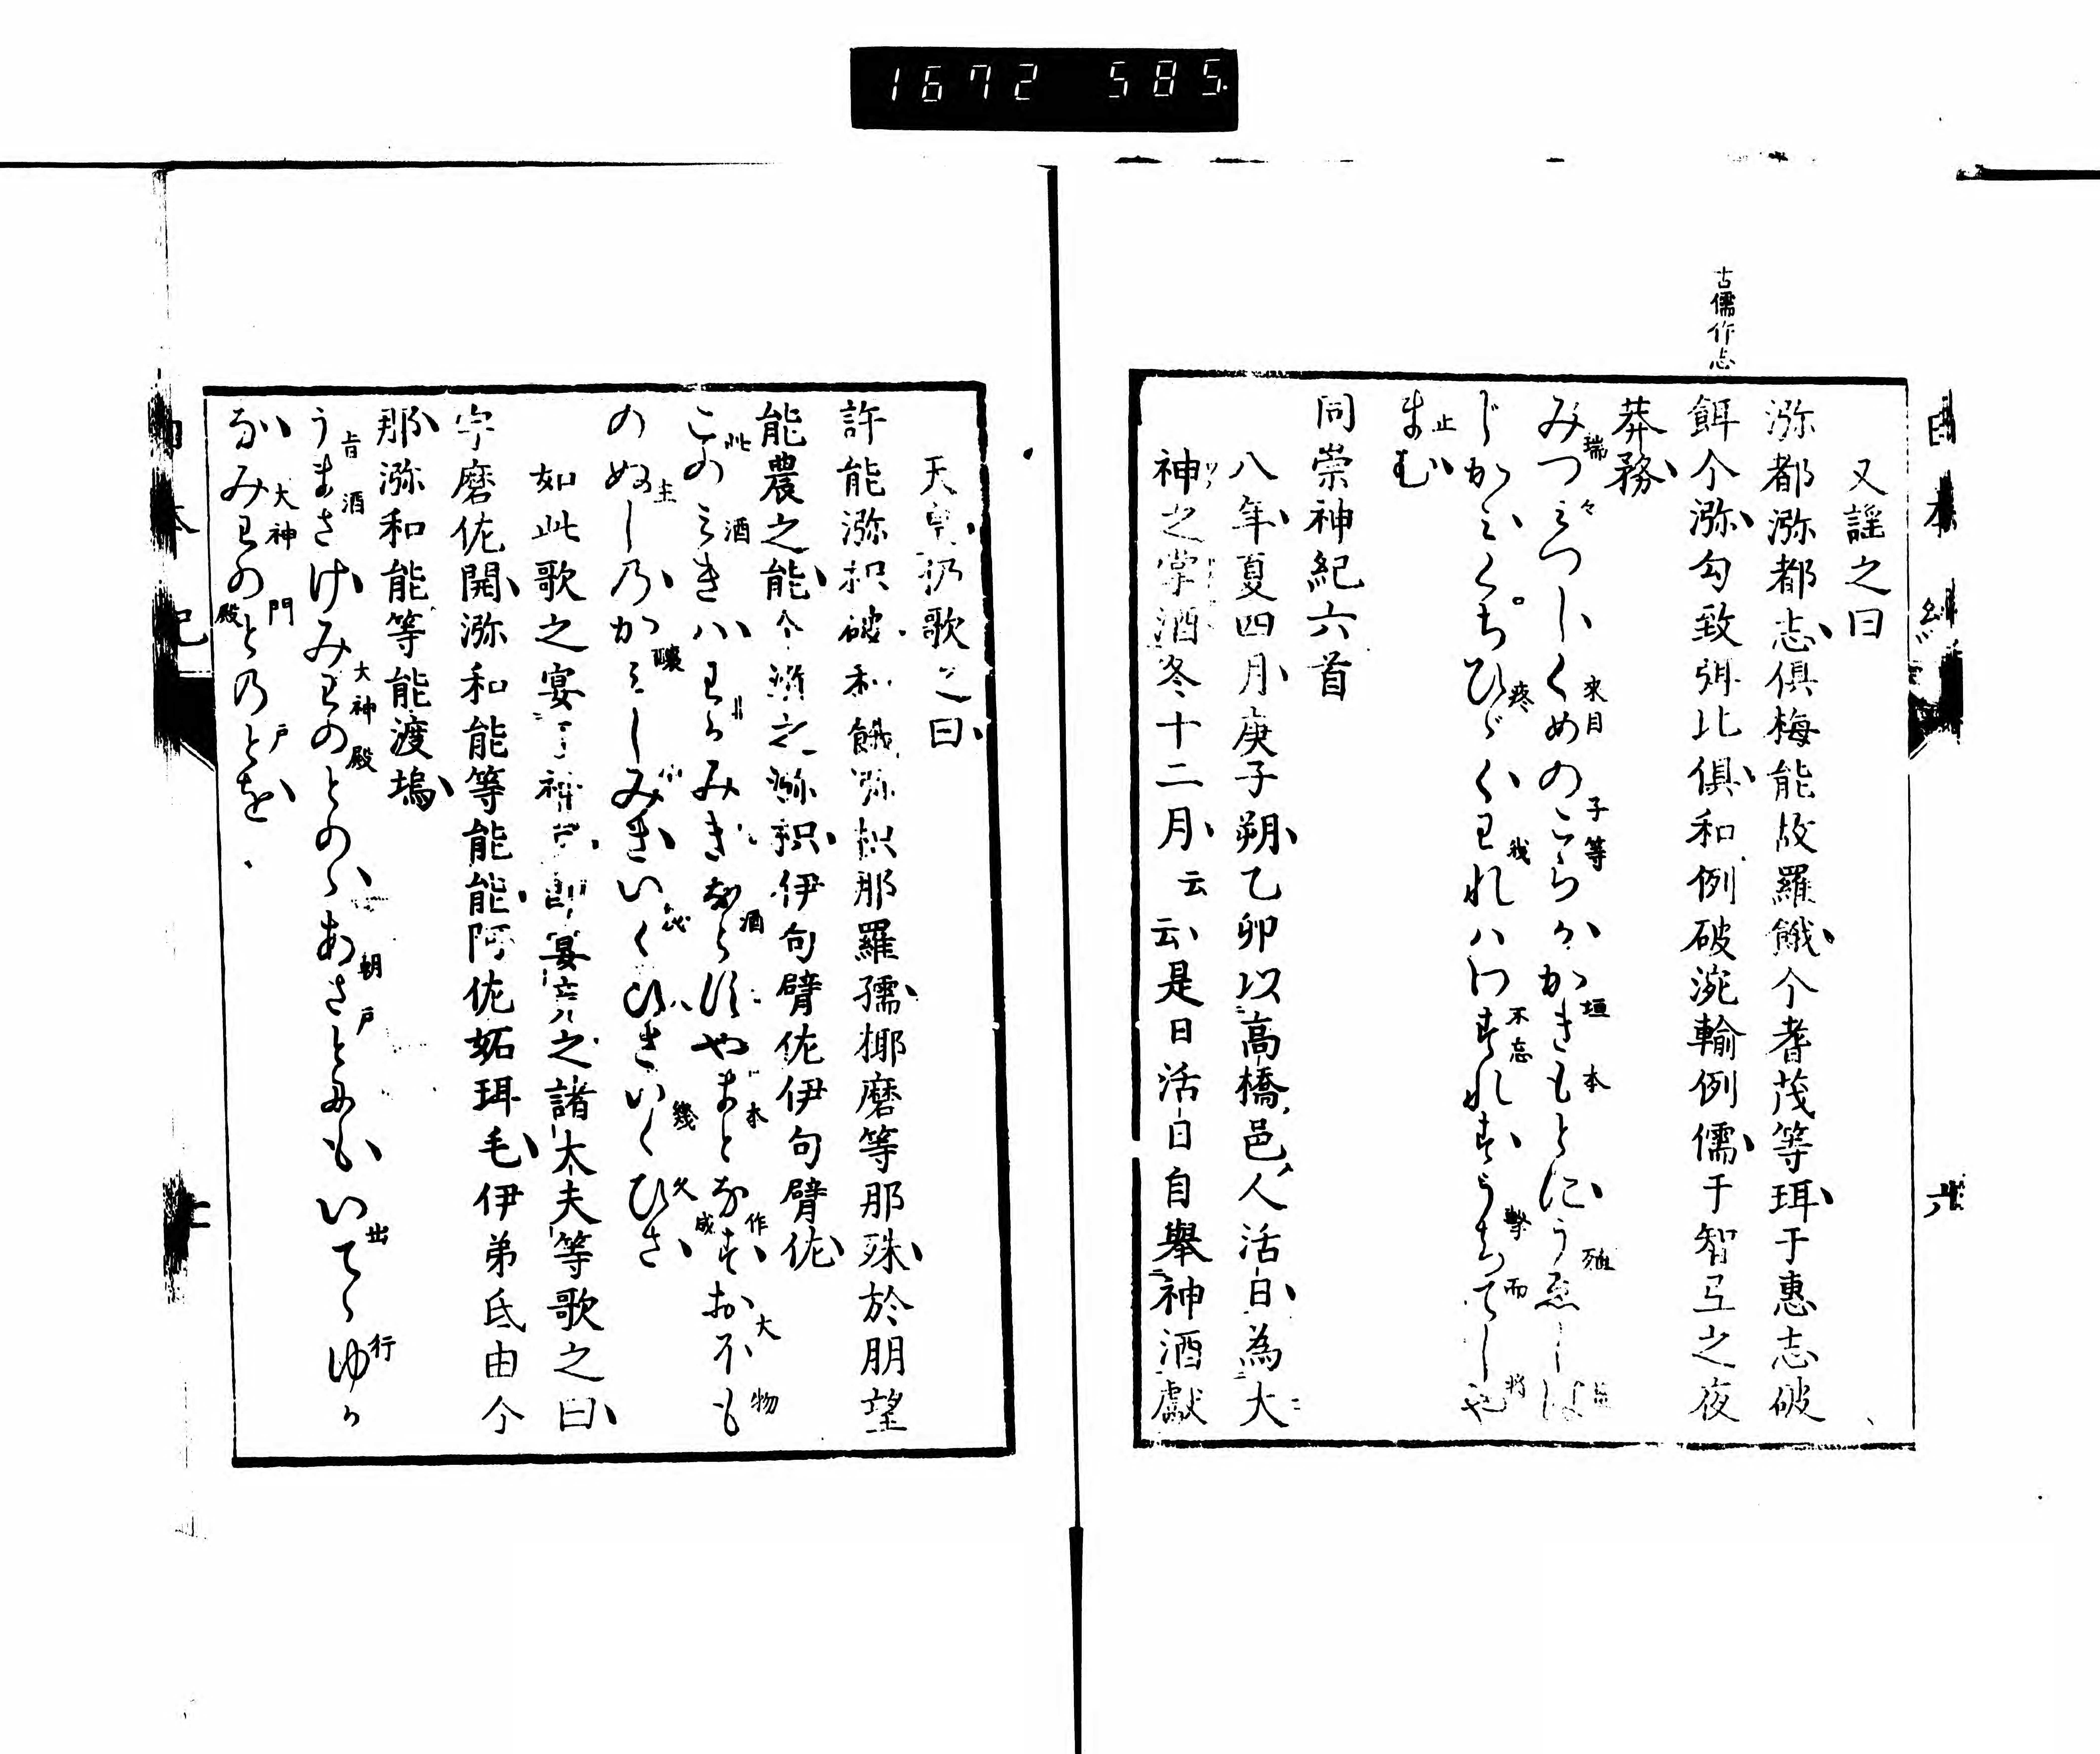 1672 585
古儒作志
日本紀
六
又謡之曰
瀰都瀰都志倶梅能故羅餓介耆茂等珥于惠志破
餌介瀰勾致弭比倶和例破涴輸例儒于智弖之夜
莽務
みつみつしくめのこらかかきもとにうゑしは
瑞々 来目 子等 垣 本 殖
じかみくちひゞくわれハわすれずうちてしや
疼 我 不忘 撃 而 将
まむ
止
同崇神紀六首
八年夏四月庚子朔乙卯以高橋邑人活日為大
神之掌酒冬十二月云云是日活日自擧神酒献
天皇仍歌之曰
許能瀰枳破和餓瀰枳那羅孺椰磨等那殊於朋望
能農之能介瀰之瀰枳伊句臂佐伊句臂佐
このみきハわかみきならすやまとなすおほも
此 酒 酒 本 作 成 大 物
のぬしのかみしみきいくひさいくひさ
主 釀 幾 久
如此歌之宴于神宮即宴竟之諸大夫等歌之曰
宇磨佐開瀰和能等能能阿佐妬珥毛伊弟氐由介
那瀰和能等能渡塢
うまさけみわのとのゝあさとにもいてゝゆか
旨 酒 大神 殿 朝戸 出 行
なみわのとのとを
大神 門 殿 戸